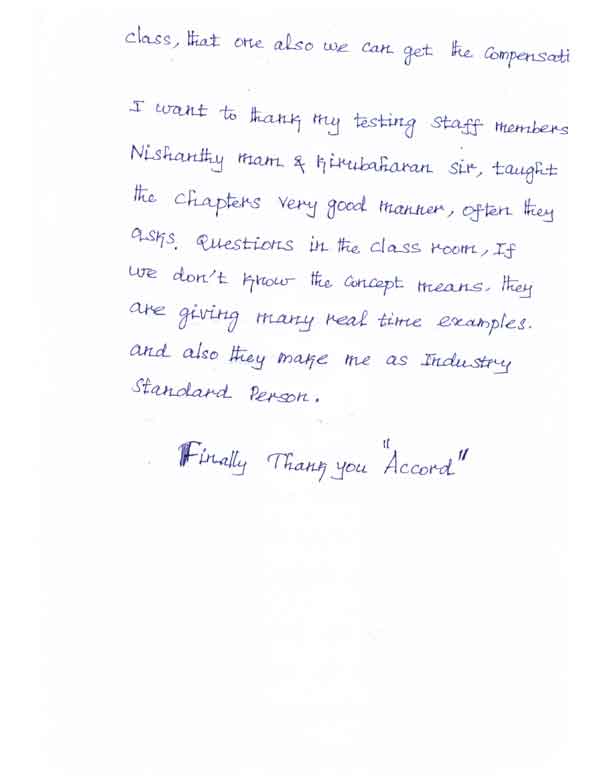 class, that one also we can get the Compensati
I want to thank my testing staff members
Nishanthy mam & Kirubaharan sir, taught
the chapters very good manner, often they
asks. Questions in the class room, If
we don't know the concept means. they
are giving many real time examples.
and also they make me as Industry
Standard Person.
Finally Thank you "Accord"